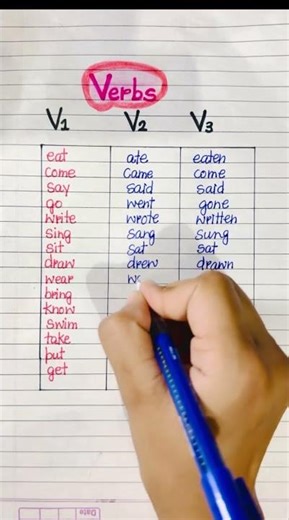 Verbs
V1 V2 V3
eat ate eaten
come came come
say said said
go went gone
write wrote written
sing sang sung
sit sat sat
draw drew drawn
wear wo
bring
know
swim
take
put
get
Date